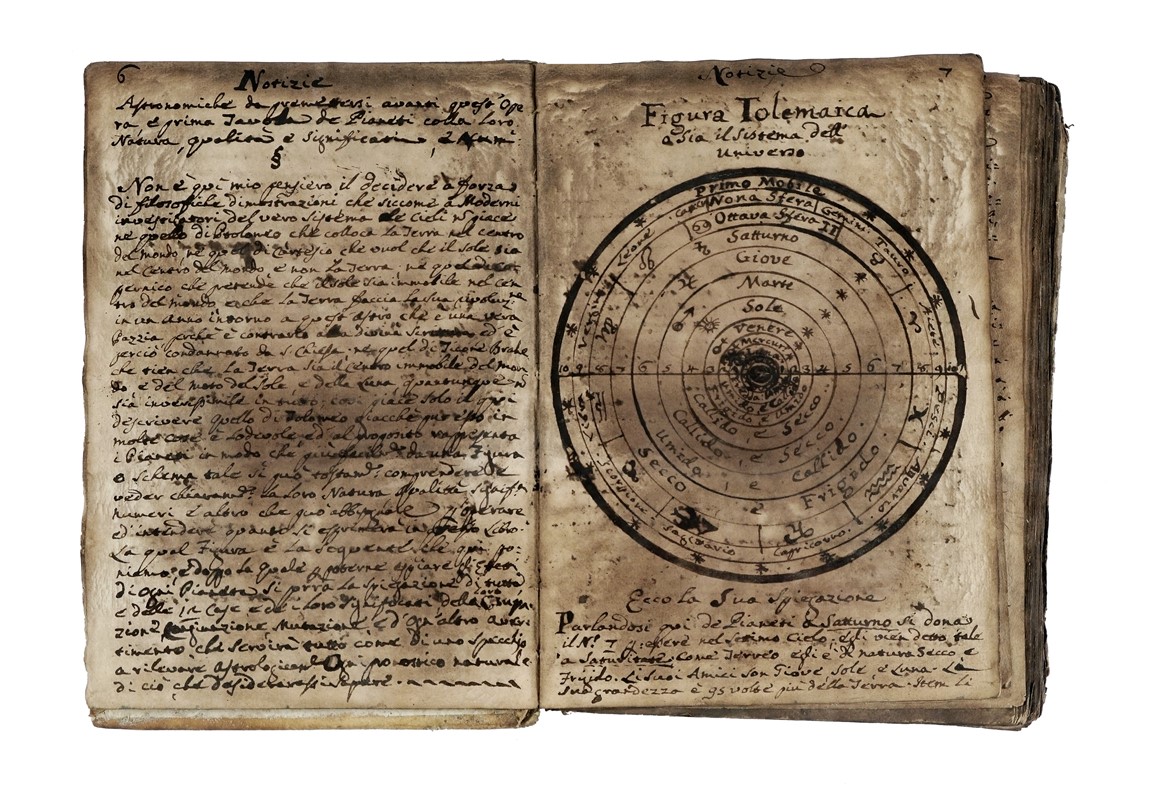 6
Notizie
Astronomiche da premettersi avanti quest'Ope
ra e prima Tavola de Pianeti colla loro
Natura, qualità e significati, e Num:
§
Non è qui mio pensiero il decidere a forza
di filosofiche dimostrazioni che siccome a Moderni
investigatori del vero sistema de Cieli
ne quello di Ptolomeo che colloca la Terra nel centro
del mondo, ne quel di Cartesio che vuol che il Sole sia
nel Centro del mondo e non la Terra, ne quel del Co
pernico che pretende che il Sole sia immobile nel cen
tro del mondo, e che la Terra faccia la sua
in un Anno intorno a quest'astro che è una vera
pazzia perche è contrario alla divina ed è
perciò condannato da S. Chiesa; ne quel di Ticone Brahe
che tien che la Terra sia il Centro immobile del mon
do e del moto del Sole e della Luna quantunque
sia inverisimile in tutto; così
descrivere quello di Ptolomeo giacchè questo in
molte cose è lodevole ed al proposito rappresenta
i Pianeti in modo che da una Figura
o schema tale si può comprendere e
veder la loro Natura qualità
numeri e altro che può p operare
ed intendere quanto si esprimerà in Libro.
La qual Figura è la seguente che qui po:
niamo; doppo la quale
di ogni Pianeta, si porrà la spiegazione di tutto
e delle 12 Case e de i loro significati della
zione Mutazione ed ogn'altro
timento che servirà tutto come di uno specchio
a rilevare Ogni pronostico naturale
di ciò che desiderarassi sapere.
Notizie
7
Figura Tolemaica
o sia il sistema dell'
Universo
Primo Mobile
Cancro Nona Sfera Gemini
69 Ottava Sfera II
Saturno
Giove
Marte
Sole
Venere
Mercurio
Leone
Vergine
Libra
Scorpione
Sagittario
Capricorno.
Aquario
Pesci
Ariete
Tauro
10 9 8 7 6 5 4 3 4 5 6 7 8 9 10
Frigido e Umido
Callido e Secco
Callido e Secco
Umido e Callido.
Secco e Frigido
Ecco la Sua Spiegazione
Parlandosi qui de Pianeti a Satturno si dona
il N.º 7 p: essere nel settimo Cielo, egli vien detto tale
a Saturitate; come Terreo egli è di natura Secco e
Frigido. Li suoi Amici son Giove Sole e Luna. La
sua grandezza è 95 volte più della Terra. Item li